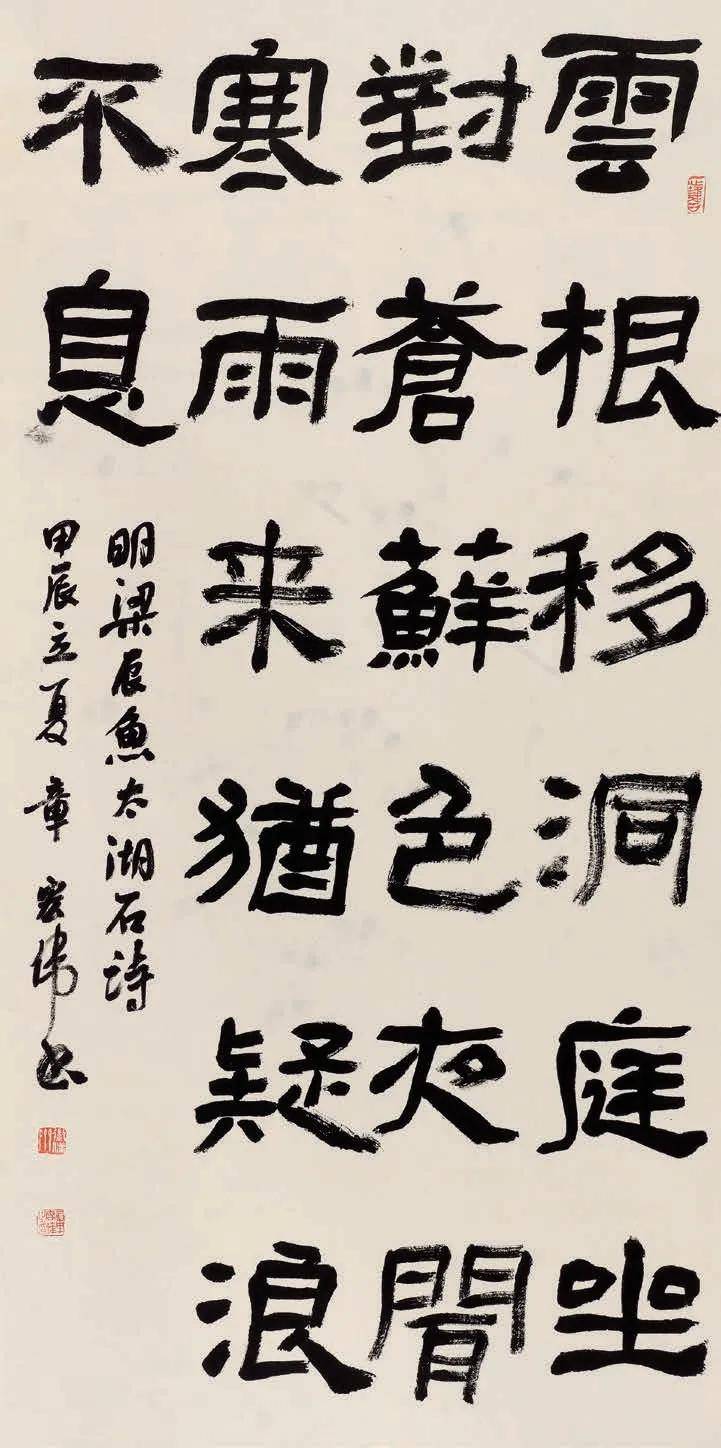 雲根移洞庭坐
對蒼蘇色夜聞
寒雨来猶疑浪
不息
明梁辰魚太湖石詩
甲辰立夏章宏伟书